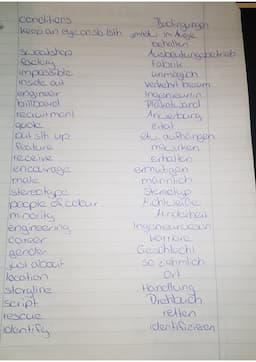 conditions Bedingungen
keep an eye on sb/sth jmdn/ im Auge
behalten
sweatshop Ausbeutungsbetrieb
factory Fabrik
impossible unmöglich
inside out verkehrt herum
engineer Ingenieur/in
billboard Plakatwand
recruitment Anwerbung
quote Zitat
put sth up etw. aufhängen
feature mitwirken
receive erhalten
encourage ermutigen
male männlich
stereotype Stereotyp
people of colour
minority Minderheit
engineering Ingenieurwesen
career Karriere
gender Geschlecht
just about so ziemlich
location Ort
storyline Handlung
script Drehbuch
rescue retten
identify identifizieren